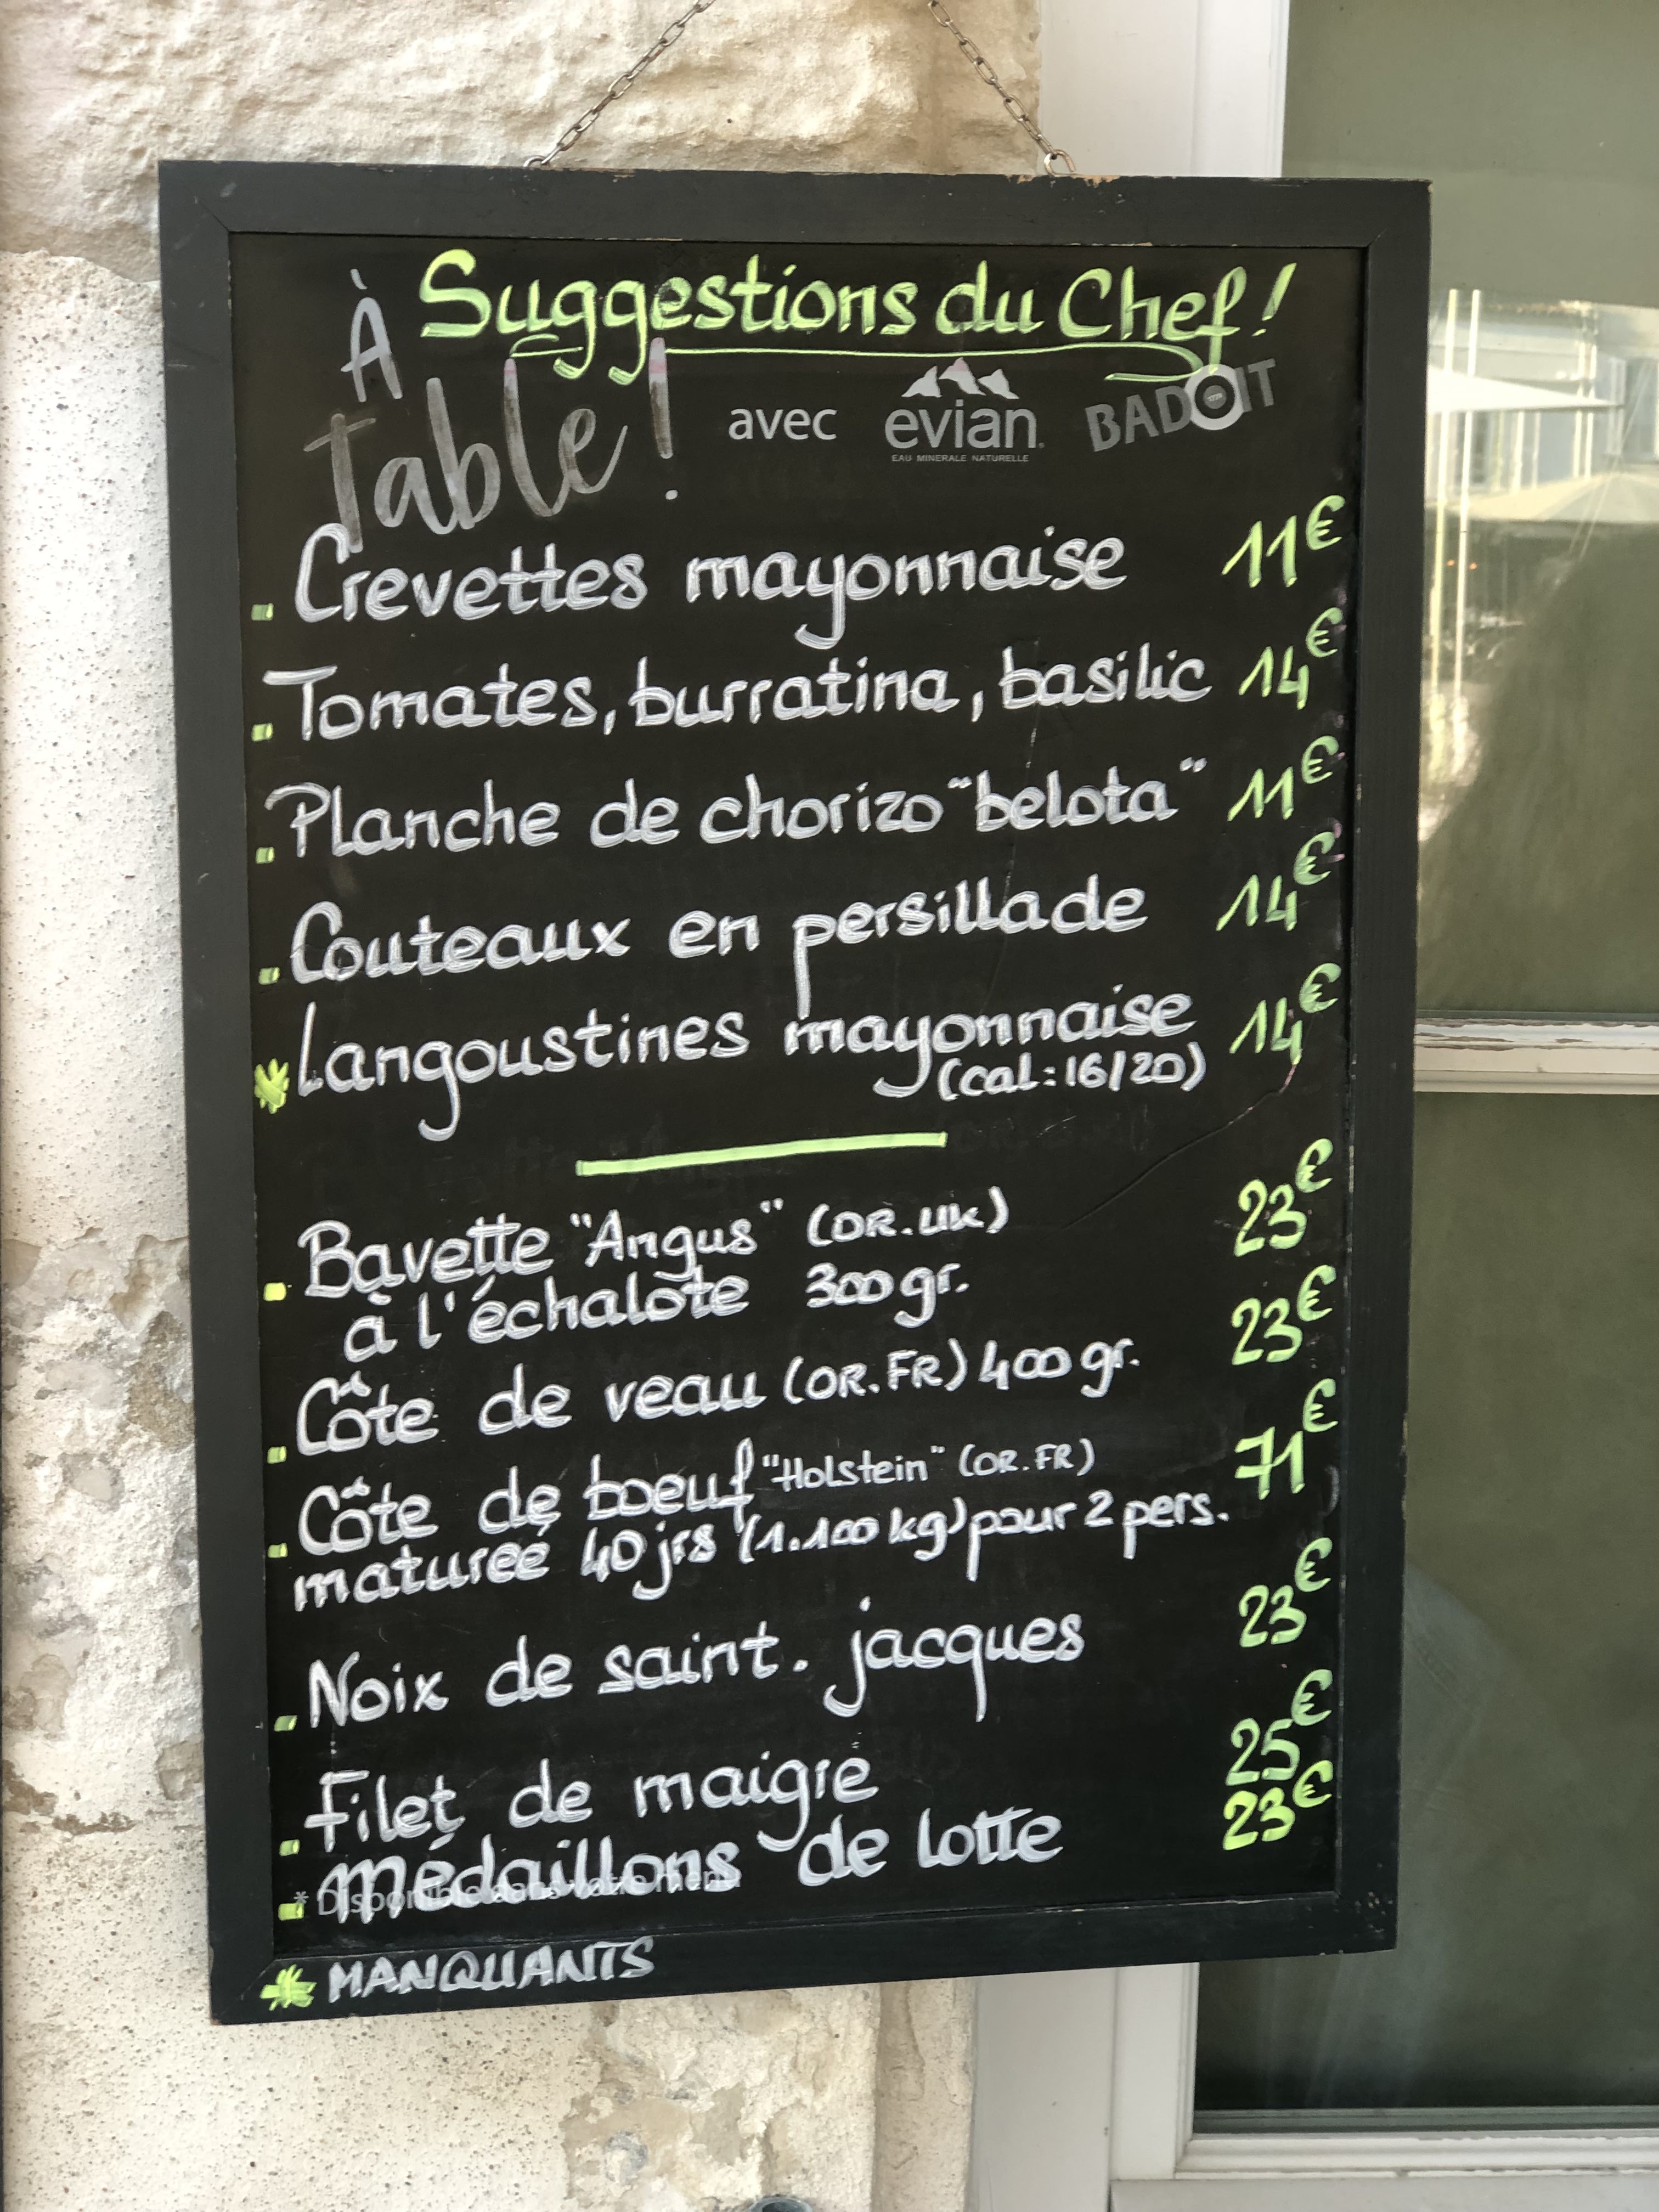 Suggestions du Chef !
À
table !
avec evian. BADOIT
EAU MINERALE NATURELLE
Crevettes mayonnaise 11€
Tomates, burratina, basilic 14€
Planche de chorizo "belota" 11€
Couteaux en persillade 14€
* Langoustines mayonnaise 14€
(cal:16/20)
Bavette "Angus" (OR.UK) 23€
à l'échalote 300 gr.
Côte de veau (OR.FR) 400 gr. 23€
Côte de boeuf "Holstein" (OR.FR) 71€
maturée 40 jrs (1.100 kg) pour 2 pers.
Noix de saint. jacques 23€
Filet de maigre 25€
Médaillons de lotte 23€
* Disponible dans votre menu
* MANQUANTS